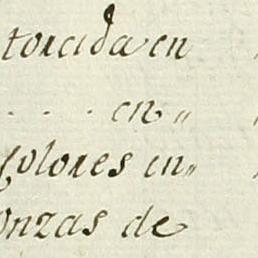 torcida en
. . . . en „
Colores en „
onzas de